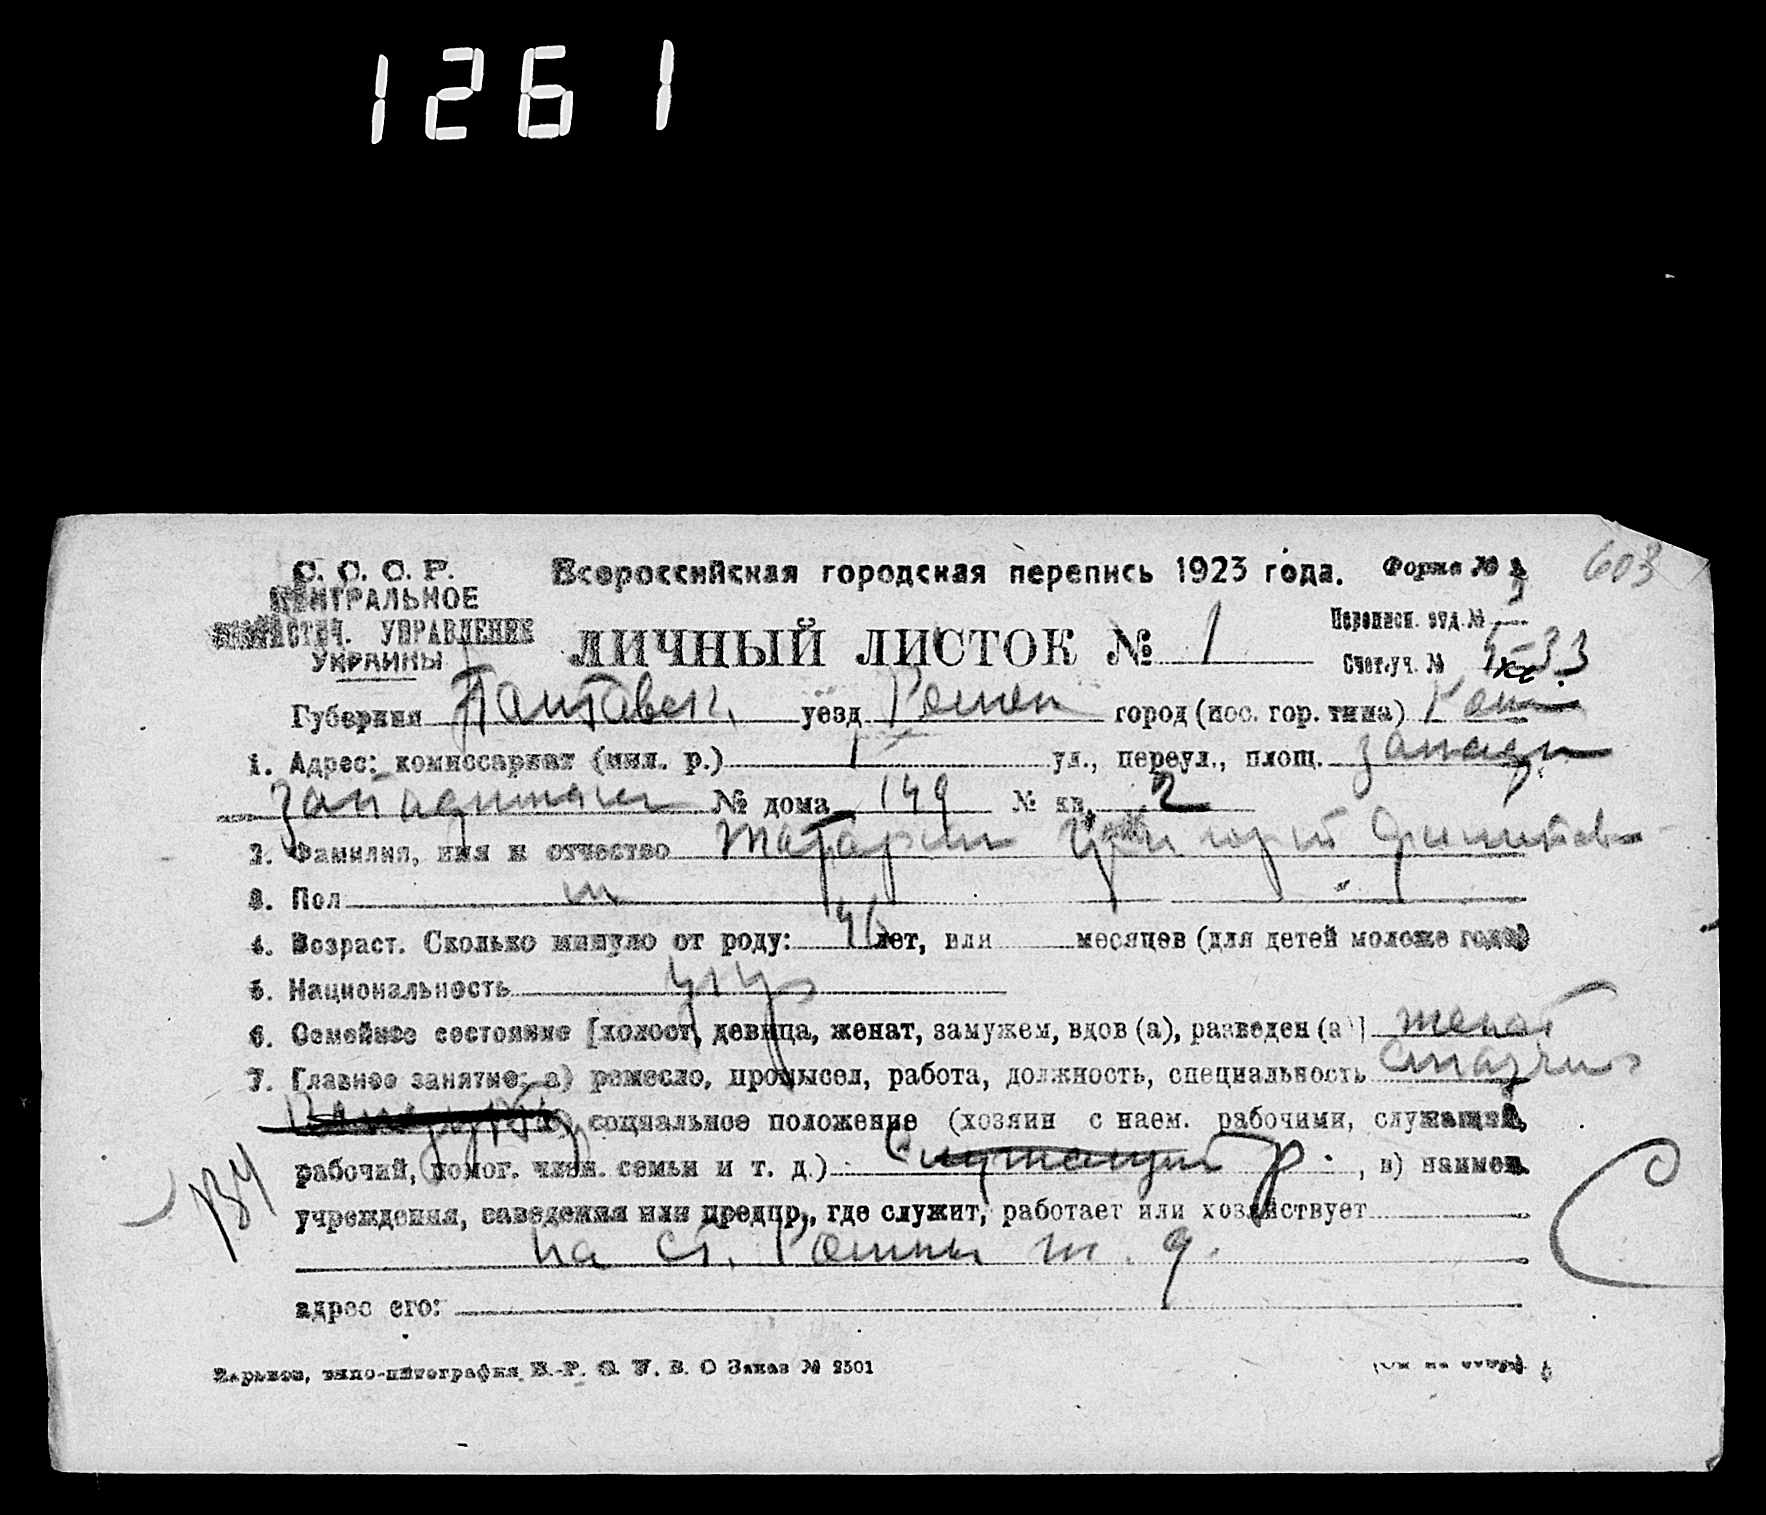 1261
С. С. С. Р. Всероссийская городская перепись 1923 года. Форма № 3 603
ЦЕНТРАЛЬНОЕ
СТАТИСТИЧ. УПРАВЛЕНИЕ
УКРАИНЫ
ЛИЧНЫЙ ЛИСТОК № 1
Переписн. отд. №
Счет.уч. № 33
Губерния Полтавск. уезд Ромен город (пос. гор. типа) Ром
1. Адрес: комиссариат (мил. р.) 1 ул., переул., площ. западн
№ дома 149 № кв. 2
2. Фамилия, имя и отчество Татарин Григорий
3. Пол м
4. Возраст. Сколько минуло от роду: 46 лет, или месяцев (для детей моложе года)
5. Национальность укр
6. Семейное состояние [холост, девица, женат, замужем, вдов (а), разведен (а)] женат
7. Главное занятие: а) ремесло, промысел, работа, должность, специальность смазчик
б) социальное положение (хозяин с наем. рабочими, служащий,
рабочий, помог. член. семьи и т. д.) Служащий р. , в) наимен.
учреждения, заведения или предпр., где служит, работает или хозяйствует
на ст. Ромны ж. д.
адрес его:
Харьков, типо-литография В. О Заказ № 2501